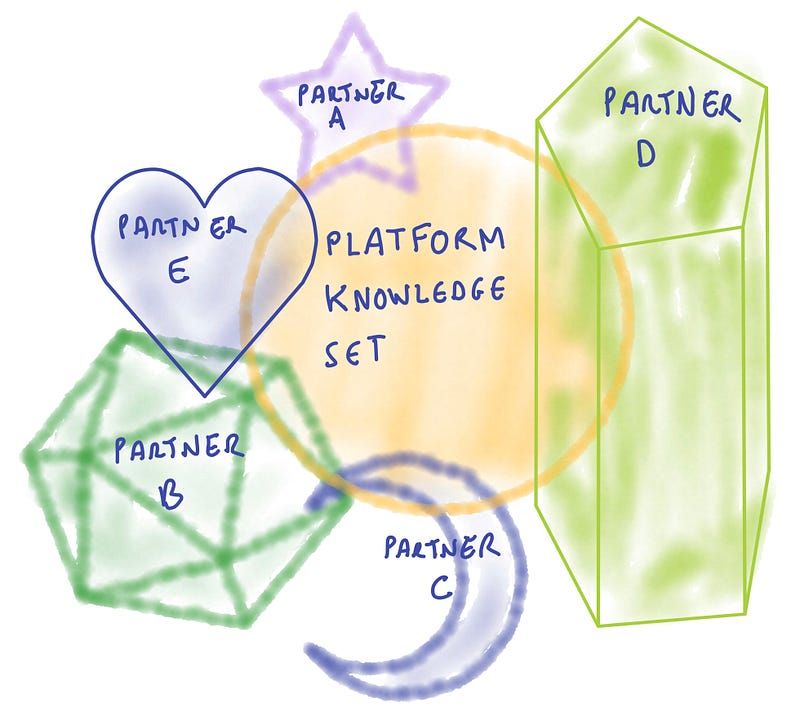 PARTNER
A
PARTNER
D
PARTNER
E
PLATFORM
KNOWLEDGE
SET
PARTNER
B
PARTNER
C